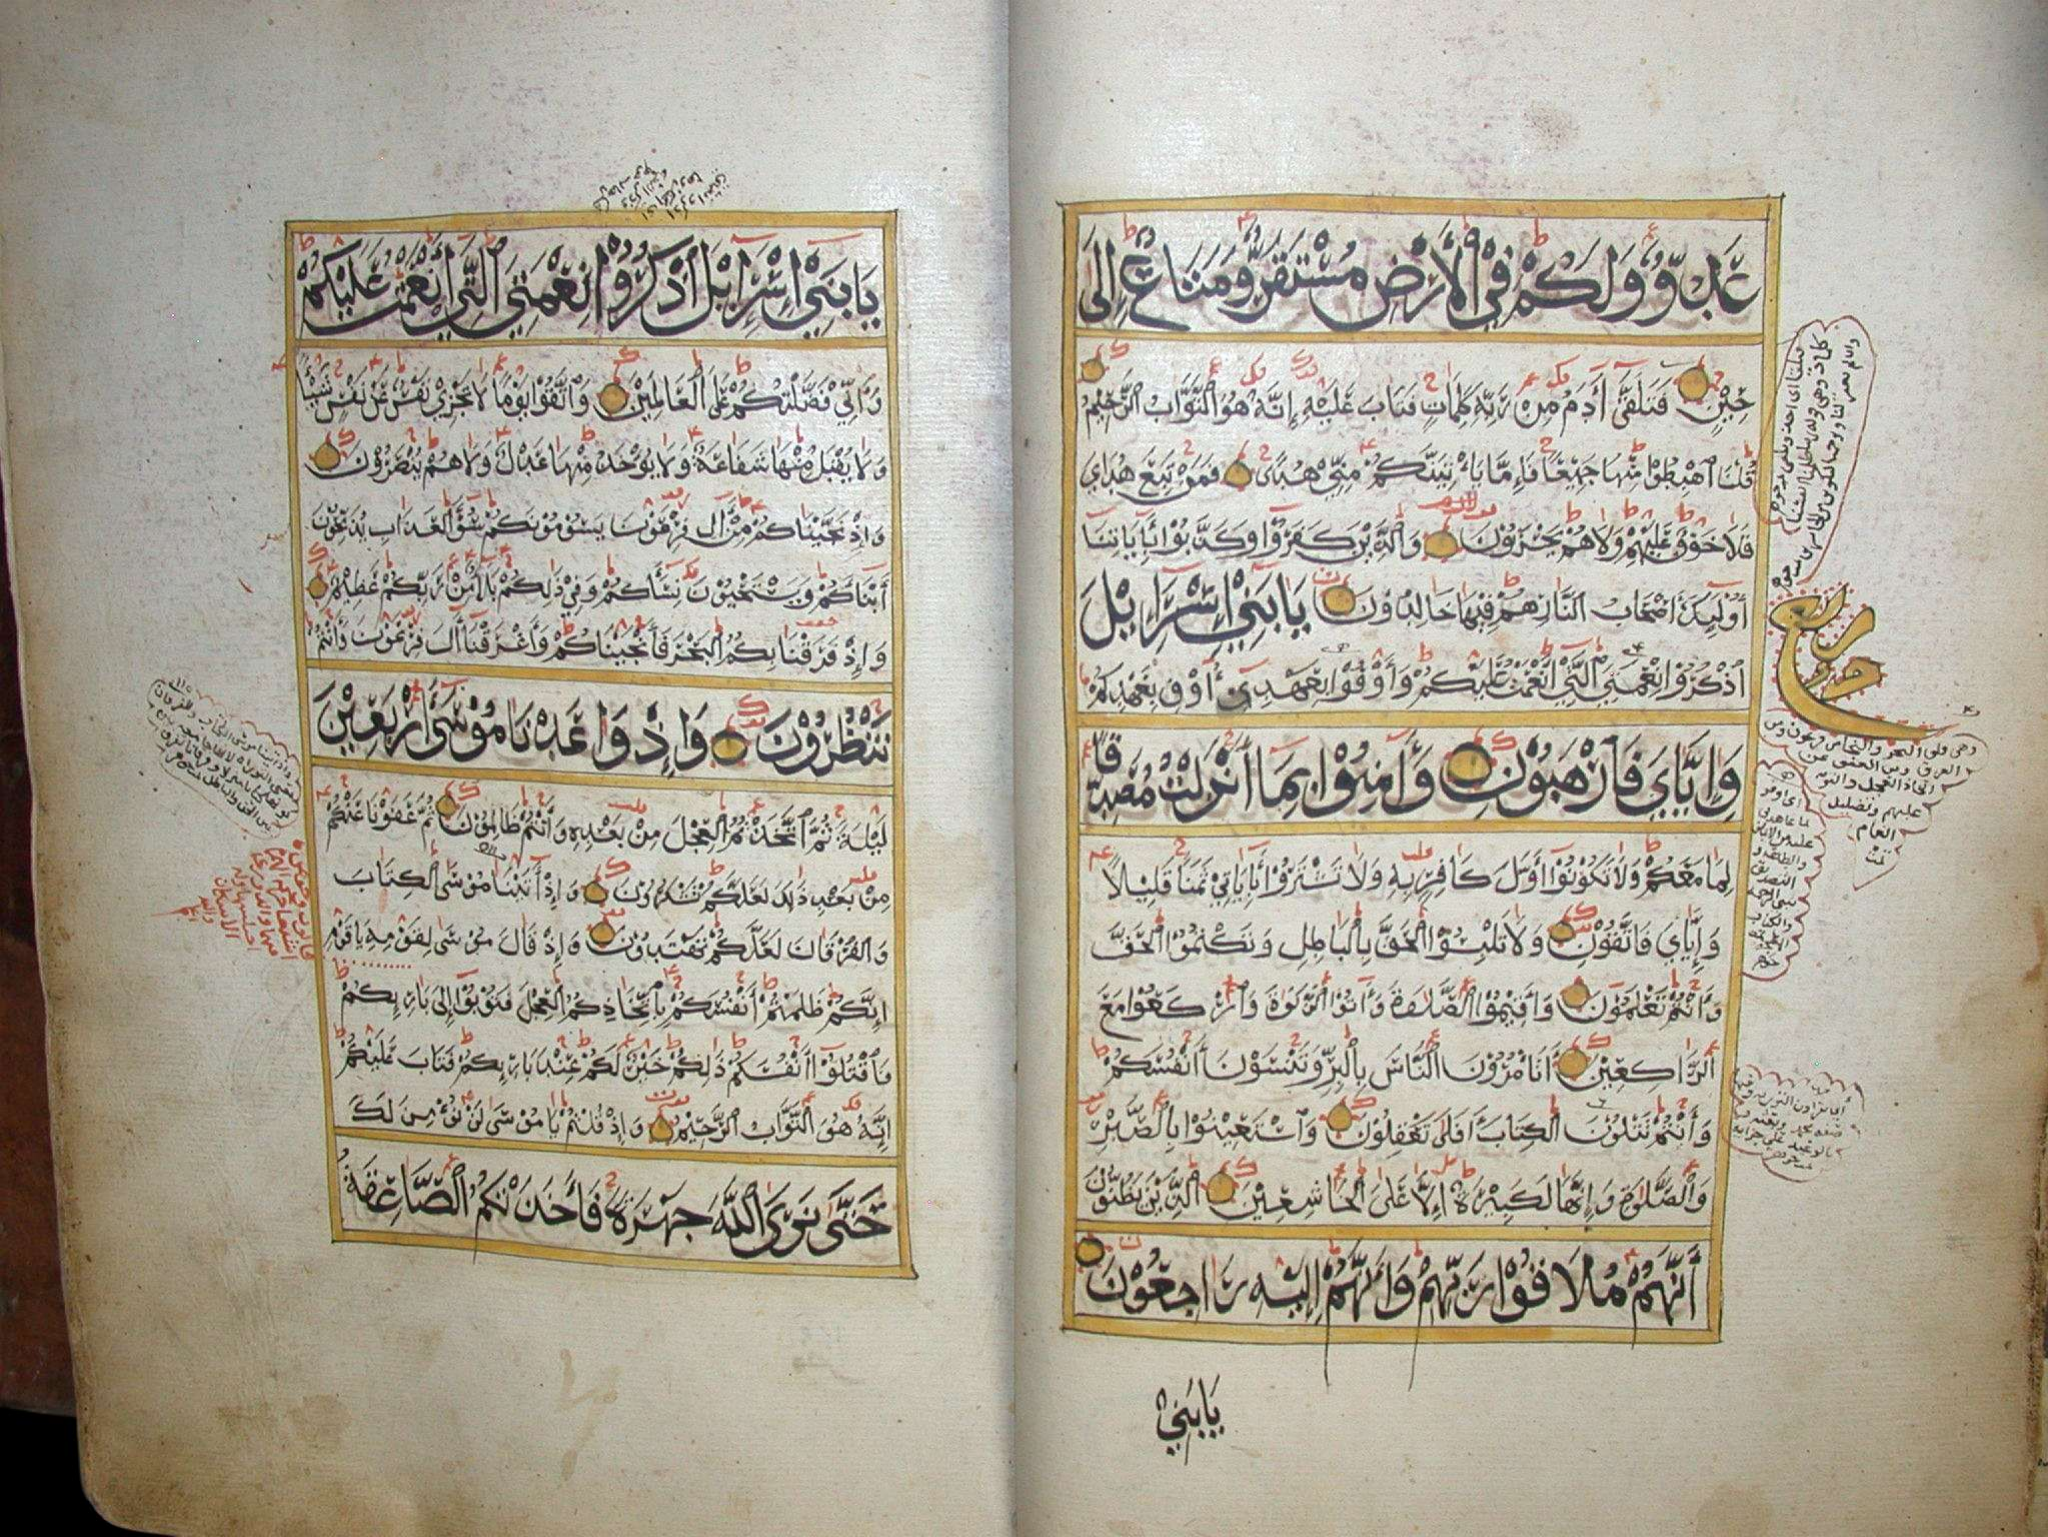 عَدُوٌّ وَلَكُمْ فِي الْأَرْضِ مُسْتَقَرٌّ وَمَتَاعٌ إِلَى
حِينٍ فَتَلَقَّى آدَمُ مِن رَّبِّهِ كَلِمَاتٍ فَتَابَ عَلَيْهِ إِنَّهُ هُوَ التَّوَّابُ الرَّحِيمُ
قُلْنَا اهْبِطُوا مِنْهَا جَمِيعًا فَإِمَّا يَأْتِيَنَّكُمْ مِنِّي هُدًى فَمَنْ تَبِعَ هُدَايَ
فَلَا خَوْفٌ عَلَيْهِمْ وَلَا هُمْ يَحْزَنُونَ وَالَّذِينَ كَفَرُوا وَكَذَّبُوا بِآيَاتِنَا
أُولَئِكَ أَصْحَابُ النَّارِ هُمْ فِيهَا خَالِدُونَ يَا بَنِي إِسْرَائِيلَ
اذْكُرُوا نِعْمَتِيَ الَّتِي أَنْعَمْتُ عَلَيْكُمْ وَأَوْفُوا بِعَهْدِي أُوفِ بِعَهْدِكُمْ
وَإِيَّايَ فَارْهَبُونِ وَآمِنُوا بِمَا أَنْزَلْتُ مُصَدِّقًا
لِمَا مَعَكُمْ وَلَا تَكُونُوا أَوَّلَ كَافِرٍ بِهِ وَلَا تَشْتَرُوا بِآيَاتِي ثَمَنًا قَلِيلًا
وَإِيَّايَ فَاتَّقُونِ وَلَا تَلْبِسُوا الْحَقَّ بِالْبَاطِلِ وَتَكْتُمُوا الْحَقَّ
وَأَنْتُمْ تَعْلَمُونَ وَأَقِيمُوا الصَّلَاةَ وَآتُوا الزَّكَاةَ وَارْكَعُوا مَعَ
الرَّاكِعِينَ أَتَأْمُرُونَ النَّاسَ بِالْبِرِّ وَتَنْسَوْنَ أَنْفُسَكُمْ
وَأَنْتُمْ تَتْلُونَ الْكِتَابَ أَفَلَا تَعْقِلُونَ وَاسْتَعِينُوا بِالصَّبْرِ
وَالصَّلَوةِ وَإِنَّهَا لَكَبِيرَةٌ إِلَّا عَلَى الْخَاشِعِينَ الَّذِينَ يَظُنُّونَ
أَنَّهُمْ مُلَاقُوا رَبِّهِمْ وَأَنَّهُمْ إِلَيْهِ رَاجِعُونَ
يَا بَنِي
يَا بَنِي إِسْرَائِلَ اذْكُرُوا نِعْمَتِيَ الَّتِي أَنْعَمْتُ عَلَيْكُمْ
وَأَنِّي فَضَّلْتُكُمْ عَلَى الْعَالَمِينَ وَاتَّقُوا يَوْمًا لَا تَجْزِي نَفْسٌ عَنْ نَفْسٍ شَيْئًا
وَلَا يُقْبَلُ مِنْهَا شَفَاعَةٌ وَلَا يُؤْخَذُ مِنْهَا عَدْلٌ وَلَا هُمْ يُنْصَرُونَ
وَإِذْ نَجَّيْنَاكُمْ مِنْ آلِ فِرْعَوْنَ يَسُومُونَكُمْ سُوءَ الْعَذَابِ يُذَبِّحُونَ
أَبْنَاءَكُمْ وَيَسْتَحْيُونَ نِسَاءَكُمْ وَفِي ذَلِكُمْ بَلَاءٌ مِنْ رَبِّكُمْ عَظِيمٌ
وَإِذْ فَرَقْنَا بِكُمُ الْبَحْرَ فَأَنْجَيْنَاكُمْ وَأَغْرَقْنَا آلَ فِرْعَوْنَ وَأَنْتُمْ
تَنْظُرُونَ وَإِذْ وَاعَدْنَا مُوسَى أَرْبَعِينَ
لَيْلَةً ثُمَّ اتَّخَذْتُمُ الْعِجْلَ مِنْ بَعْدِهِ وَأَنْتُمْ ظَالِمُونَ ثُمَّ عَفَوْنَا عَنْكُمْ
مِنْ بَعْدِ ذَلِكَ لَعَلَّكُمْ تَشْكُرُونَ وَإِذْ آتَيْنَا مُوسَى الْكِتَابَ
وَالْفُرْقَانَ لَعَلَّكُمْ تَهْتَدُونَ وَإِذْ قَالَ مُوسَى لِقَوْمِهِ يَا قَوْمِ
إِنَّكُمْ ظَلَمْتُمْ أَنْفُسَكُمْ بِاتِّخَاذِكُمُ الْعِجْلَ فَتُوبُوا إِلَى بَارِئِكُمْ
فَاقْتُلُوا أَنْفُسَكُمْ ذَلِكُمْ خَيْرٌ لَكُمْ عِنْدَ بَارِئِكُمْ فَتَابَ عَلَيْكُمْ
إِنَّهُ هُوَ التَّوَّابُ الرَّحِيمُ وَإِذْ قُلْتُمْ يَا مُوسَى لَنْ نُؤْمِنَ لَكَ
حَتَّى نَرَى اللَّهَ جَهْرَةً فَأَخَذَتْكُمُ الصَّاعِقَةُ